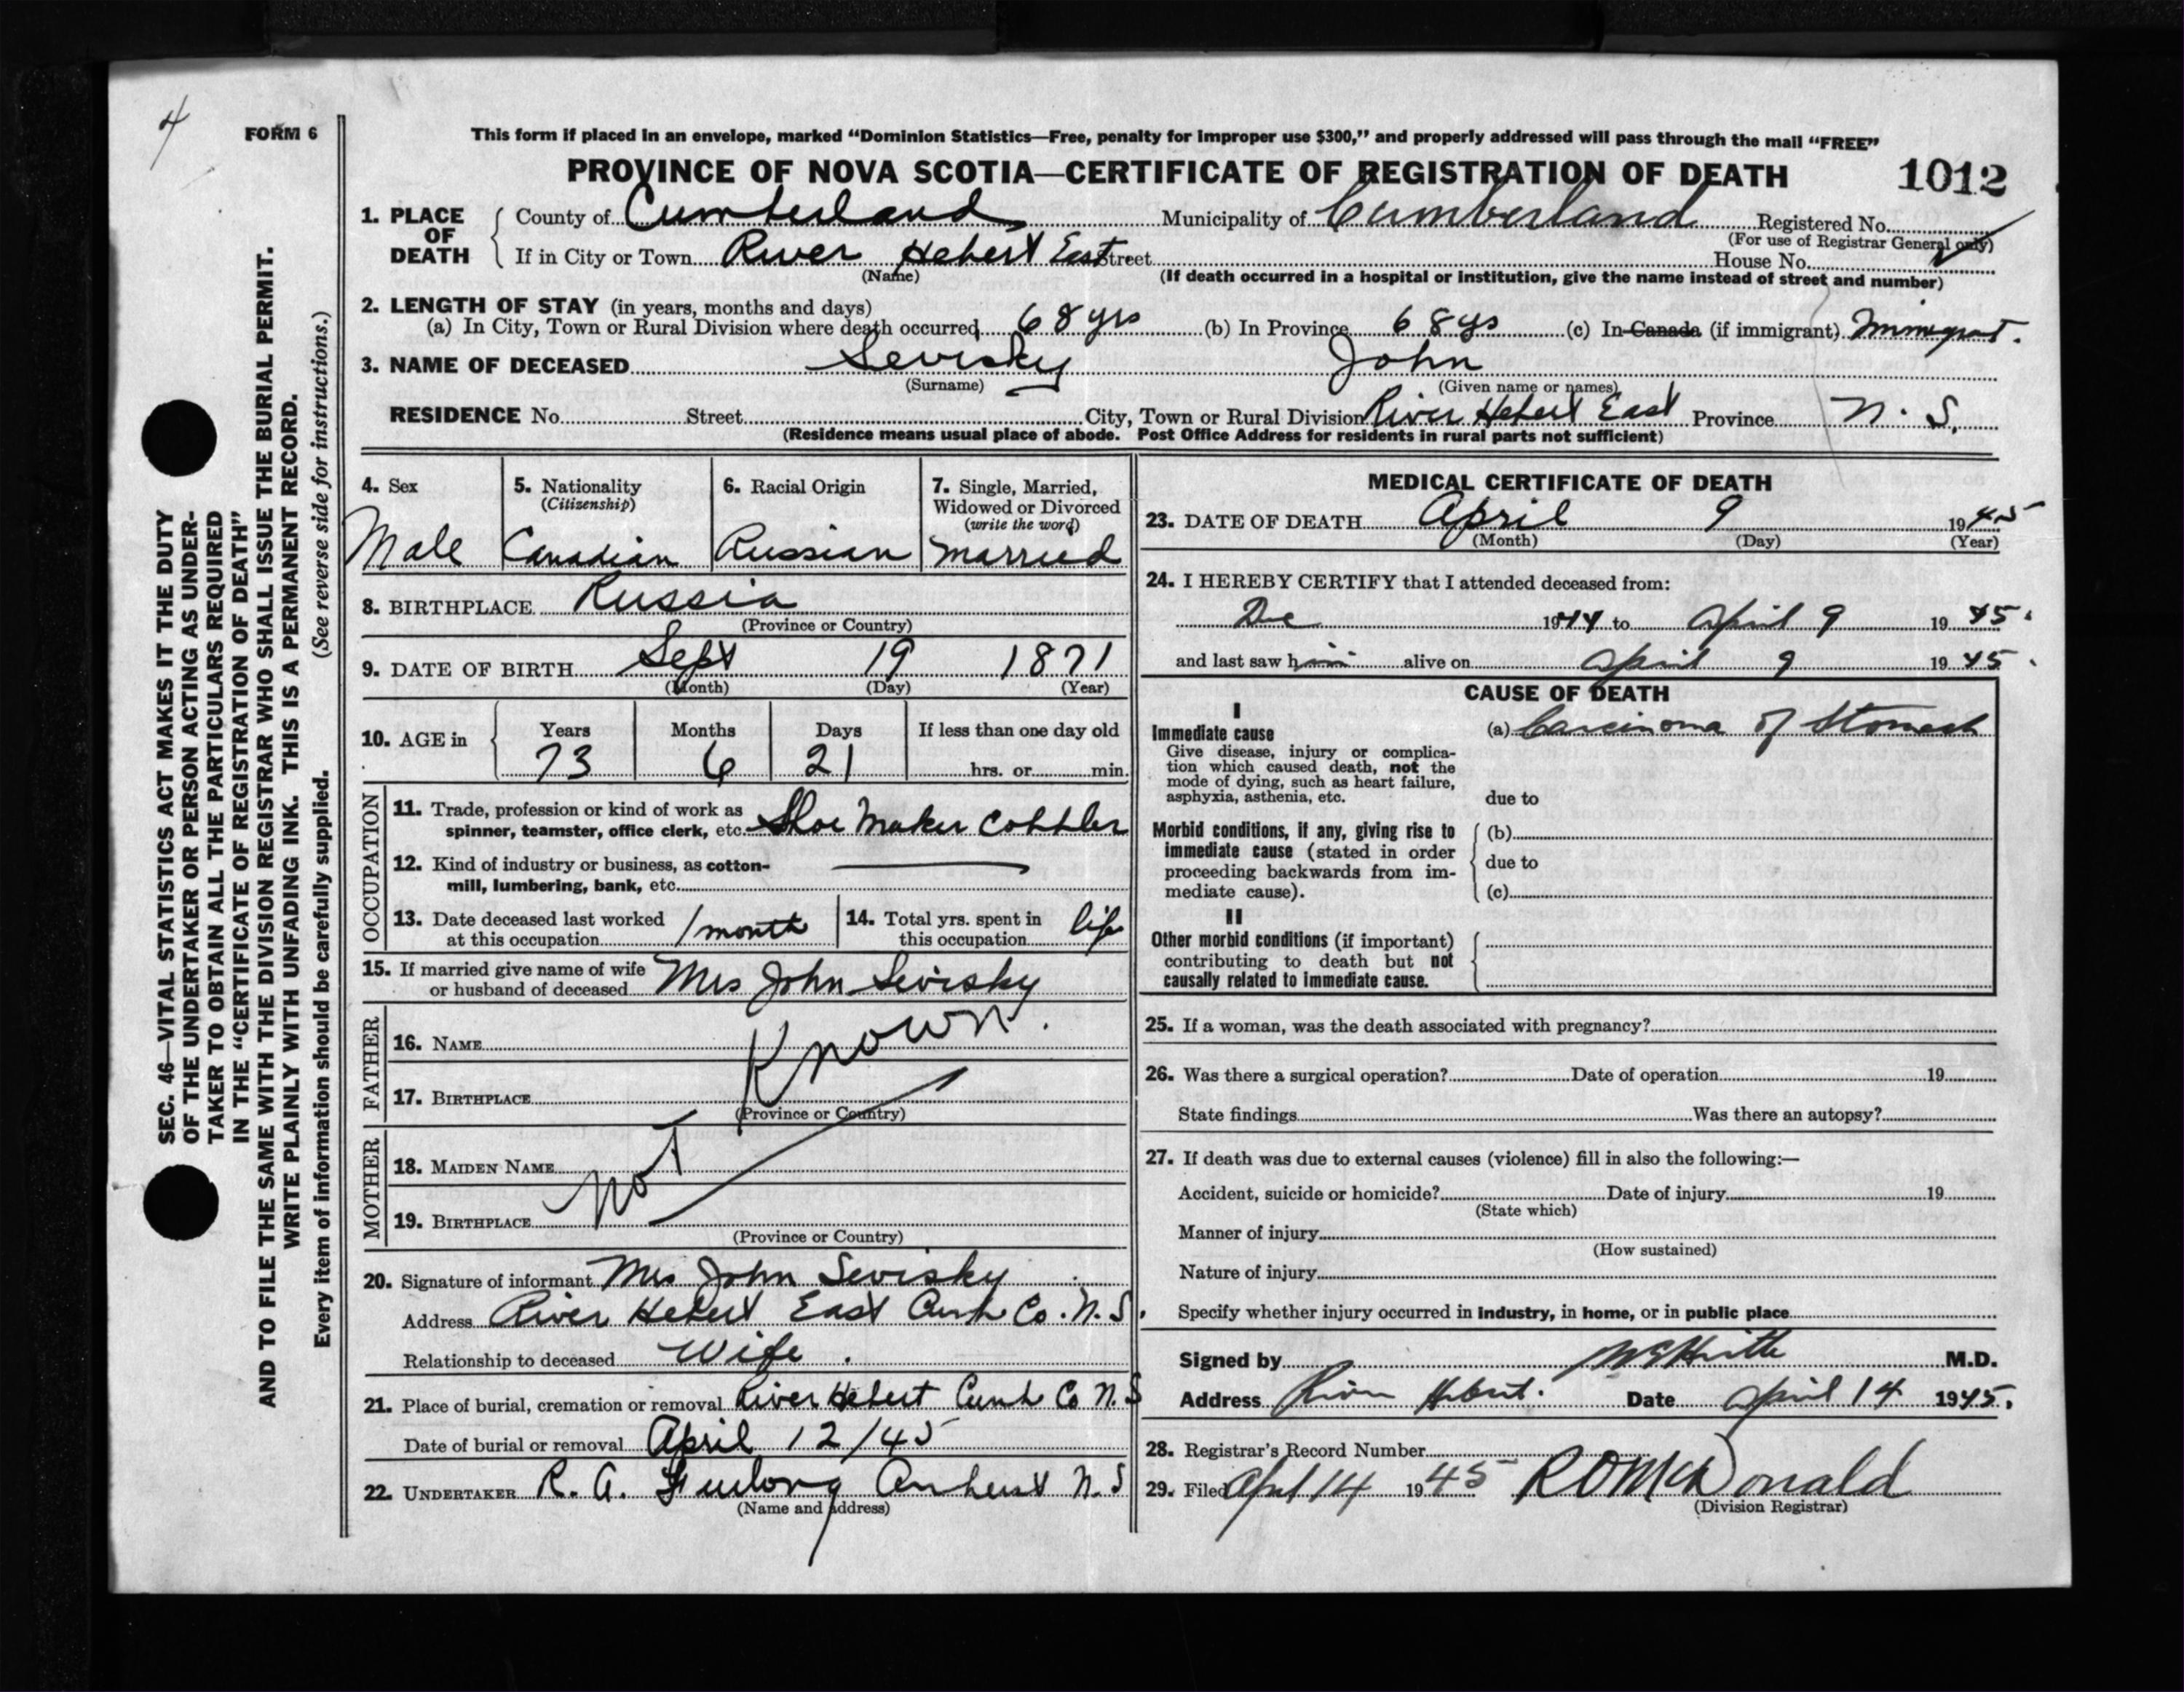 4
FORM 6
This form if placed in an envelope, marked “Dominion Statistics—Free, penalty for improper use $300,” and properly addressed will pass through the mail “FREE”
PROVINCE OF NOVA SCOTIA—CERTIFICATE OF REGISTRATION OF DEATH 1012
1. PLACE OF DEATH
County of Cumberland Municipality of Cumberland Registered No.
(For use of Registrar General only)
If in City or Town River Hebert East Street House No.
(Name)
(If death occurred in a hospital or institution, give the name instead of street and number)
2. LENGTH OF STAY (in years, months and days)
(a) In City, Town or Rural Division where death occurred 68 yrs (b) In Province 68 ys (c) In Canada (if immigrant) Immigrant.
3. NAME OF DECEASED Sevisky John
(Surname) (Given name or names)
RESIDENCE No. Street City, Town or Rural Division River Hebert East Province N. S.
(Residence means usual place of abode. Post Office Address for residents in rural parts not sufficient)
4. Sex
Male
5. Nationality
(Citizenship)
Canadian
6. Racial Origin
Russian
7. Single, Married,
Widowed or Divorced
(write the word)
Married
8. BIRTHPLACE Russia
(Province or Country)
9. DATE OF BIRTH Sept 19 1871
(Month) (Day) (Year)
10. AGE in Years Months Days If less than one day old
73 6 21 hrs. or min.
OCCUPATION
11. Trade, profession or kind of work as
spinner, teamster, office clerk, etc. Shoe Maker Cobbler
12. Kind of industry or business, as cotton-
mill, lumbering, bank, etc.
13. Date deceased last worked
at this occupation 1 month
14. Total yrs. spent in
this occupation life
15. If married give name of wife
or husband of deceased Mrs John Sevisky
FATHER
16. NAME
Known.
17. BIRTHPLACE
(Province or Country)
MOTHER
18. MAIDEN NAME
Not
19. BIRTHPLACE
(Province or Country)
20. Signature of informant Mrs John Sevisky
Address River Hebert East Cumb Co. N.S.
Relationship to deceased Wife.
21. Place of burial, cremation or removal River Hebert Cumb Co N.S
Date of burial or removal April 12/45
22. UNDERTAKER R. A. Furlong Amherst N.S
(Name and address)
MEDICAL CERTIFICATE OF DEATH
23. DATE OF DEATH April 9 1945
(Month) (Day) (Year)
24. I HEREBY CERTIFY that I attended deceased from:
Dec 1944 to April 9 1945.
and last saw him alive on April 9 1945.
CAUSE OF DEATH
I
Immediate cause
Give disease, injury or complica-
tion which caused death, not the
mode of dying, such as heart failure,
asphyxia, asthenia, etc.
(a) Carcinoma of Stomach
due to
Morbid conditions, if any, giving rise to
immediate cause (stated in order
proceeding backwards from im-
mediate cause).
(b)
due to
(c)
II
Other morbid conditions (if important)
contributing to death but not
causally related to immediate cause.
25. If a woman, was the death associated with pregnancy?
26. Was there a surgical operation? Date of operation 19
State findings Was there an autopsy?
27. If death was due to external causes (violence) fill in also the following:—
Accident, suicide or homicide? Date of injury 19
(State which)
Manner of injury
(How sustained)
Nature of injury
Specify whether injury occurred in industry, in home, or in public place
Signed by M.D.
Address River Hebert. Date April 14 1945.
28. Registrar's Record Number
29. Filed April 14 1945 R O McDonald
(Division Registrar)
SEC. 46—VITAL STATISTICS ACT MAKES IT THE DUTY
OF THE UNDERTAKER OR PERSON ACTING AS UNDER-
TAKER TO OBTAIN ALL THE PARTICULARS REQUIRED
IN THE “CERTIFICATE OF REGISTRATION OF DEATH”
AND TO FILE THE SAME WITH THE DIVISION REGISTRAR WHO SHALL ISSUE THE BURIAL PERMIT.
WRITE PLAINLY WITH UNFADING INK. THIS IS A PERMANENT RECORD.
Every item of information should be carefully supplied. (See reverse side for instructions.)